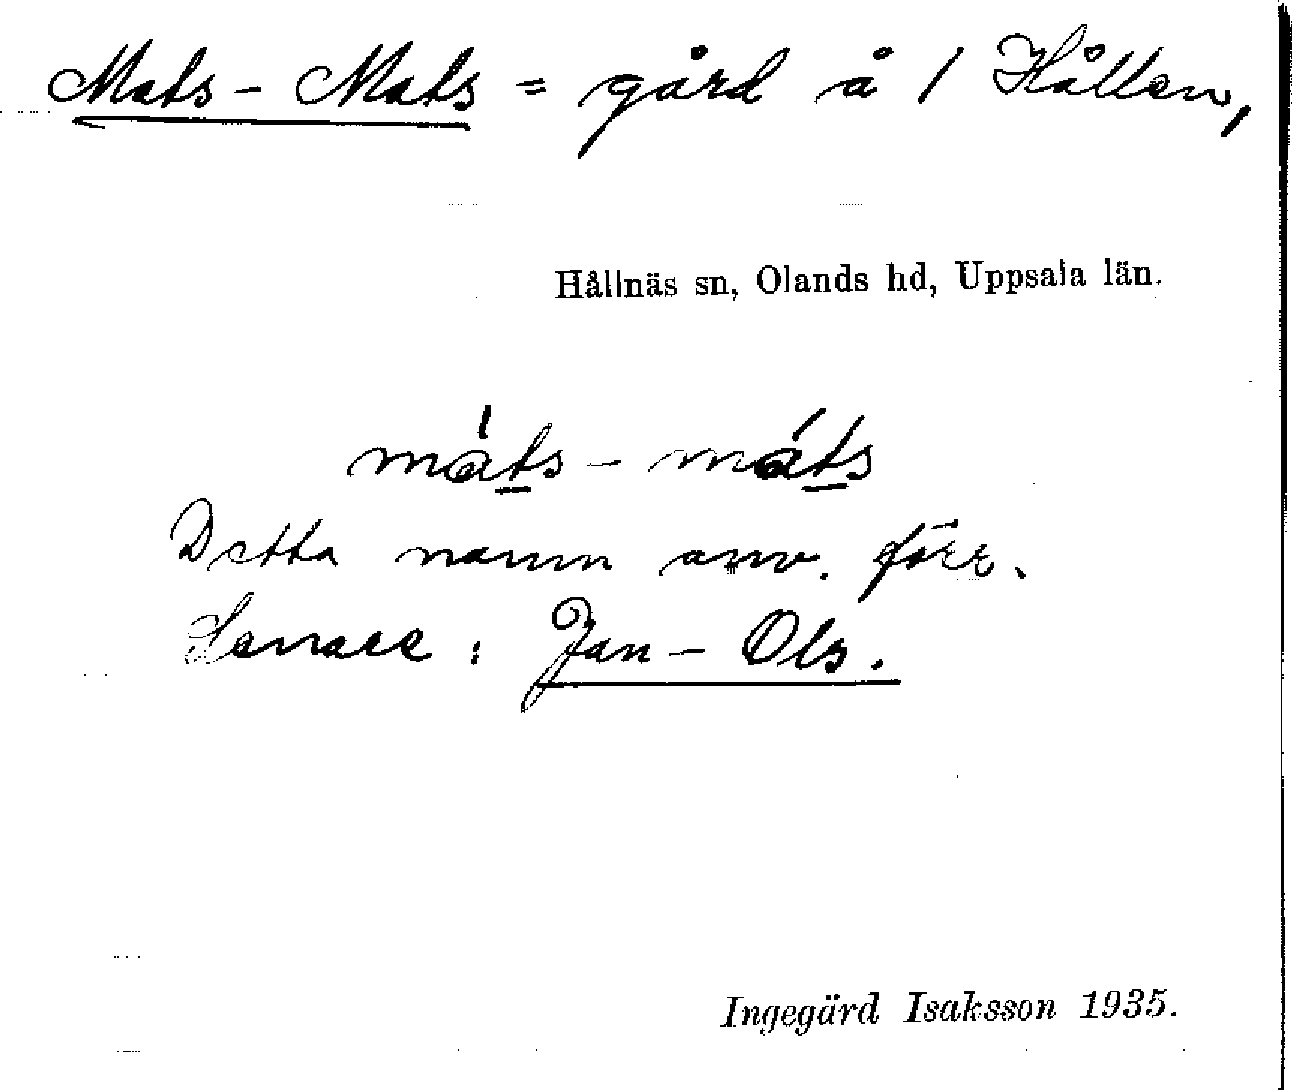 Mats - Mats = gård å 1 Hållen,
Hållnäs sn, Olands hd, Uppsala län.
máts - máts
Detta namn anv. förr.
Senare: Jan - Ols.
Ingegärd Isaksson 1935.